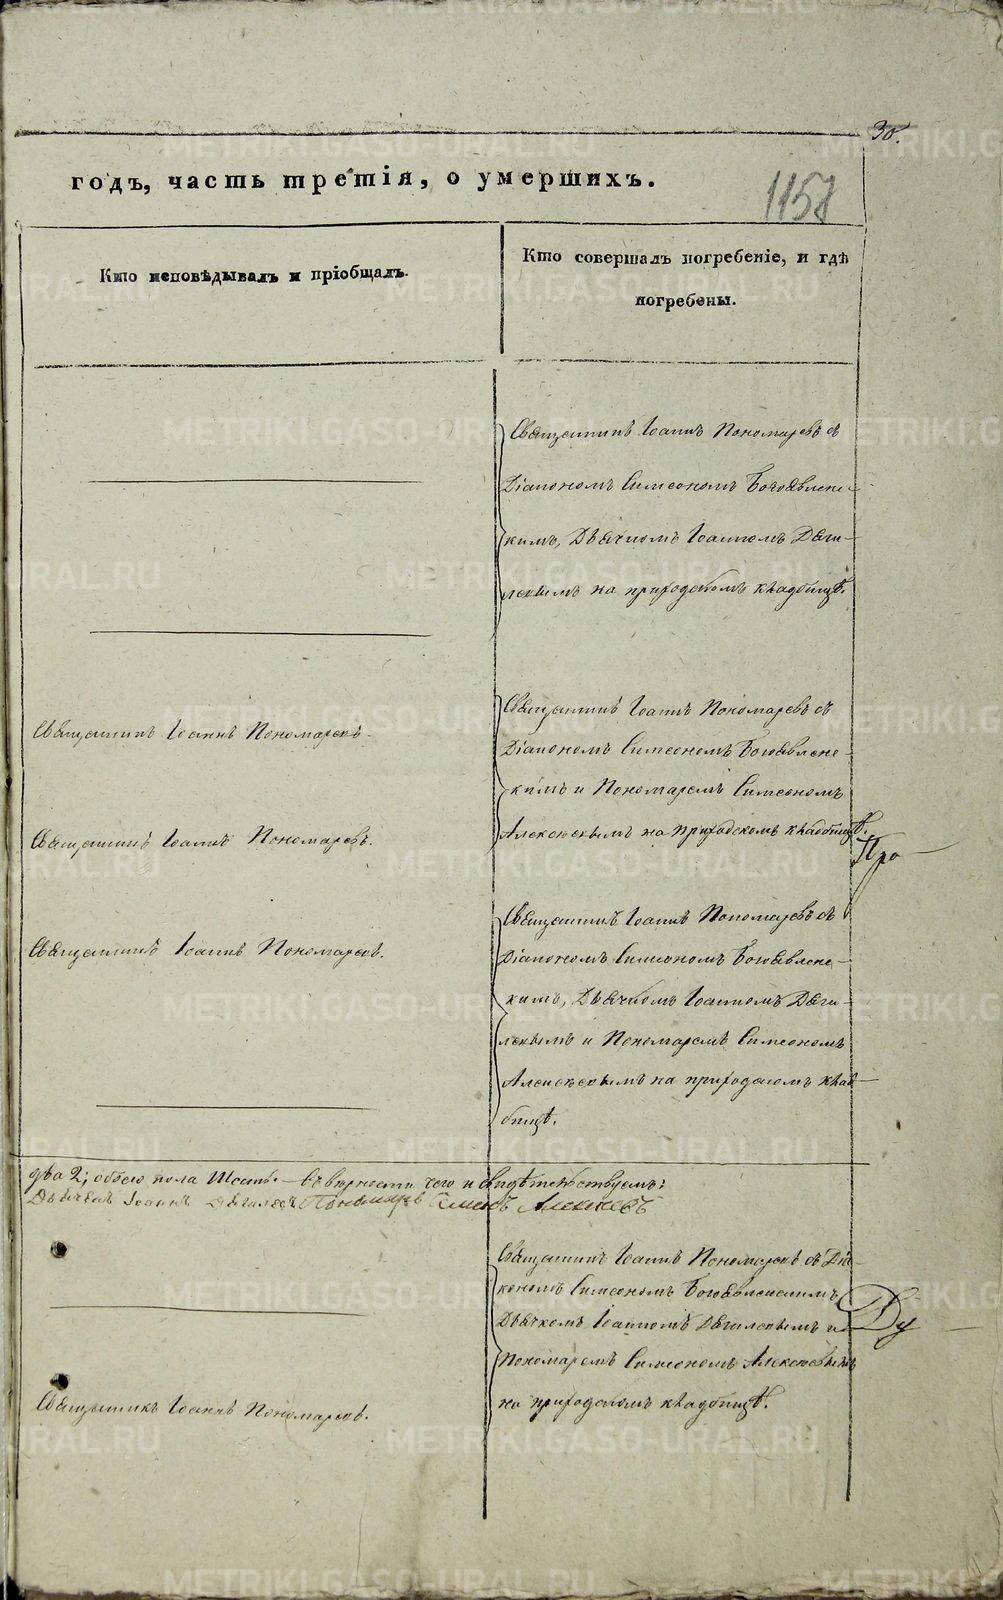 30.
годъ, часть третія, о умершихъ.
1157
Кто исповѣдывалъ и пріобщалъ.
Кто совершалъ погребеніе, и гдѣ
погребены.
Священникъ Іоаннъ Пономаревъ съ
Діакономъ Симеономъ Богоявленс-
кимъ, Дьячкомъ Іоанномъ Дяги-
левымъ на приходскомъ кладбищѣ.
Священникъ Іоаннъ Пономаревъ.
Священникъ Іоаннъ Пономаревъ съ
Діакономъ Симеономъ Богоявленс-
кимъ и Пономаремъ Симеономъ
Алексѣевымъ на приходскомъ кладбищѣ.
Священникъ Іоаннъ Пономаревъ.
Про
Священникъ Іоаннъ Пономаревъ.
Священникъ Іоаннъ Пономаревъ съ
Діакономъ Симеономъ Богоявленс-
кимъ, Дьячкомъ Іоанномъ Дяги-
левымъ и Пономаремъ Симеономъ
Алексѣевымъ на приходскомъ клад-
бищѣ.
два 2; обоего пола Шесть. — Въ вѣрности чего и свидѣтельствуемъ:
Дьячекъ Іоаннъ Дягилевъ Пономарь Симеонъ Алексѣевъ
Священникъ Іоаннъ Пономаревъ съ Діа-
кономъ Симеономъ Богоявленскимъ,
Дьячкомъ Іоанномъ Дягилевымъ и
Пономаремъ Симеономъ Алексѣевымъ
на приходскомъ кладбищѣ.
Ду
Священникъ Іоаннъ Пономаревъ.
METRIKI.GASO-URAL.RU